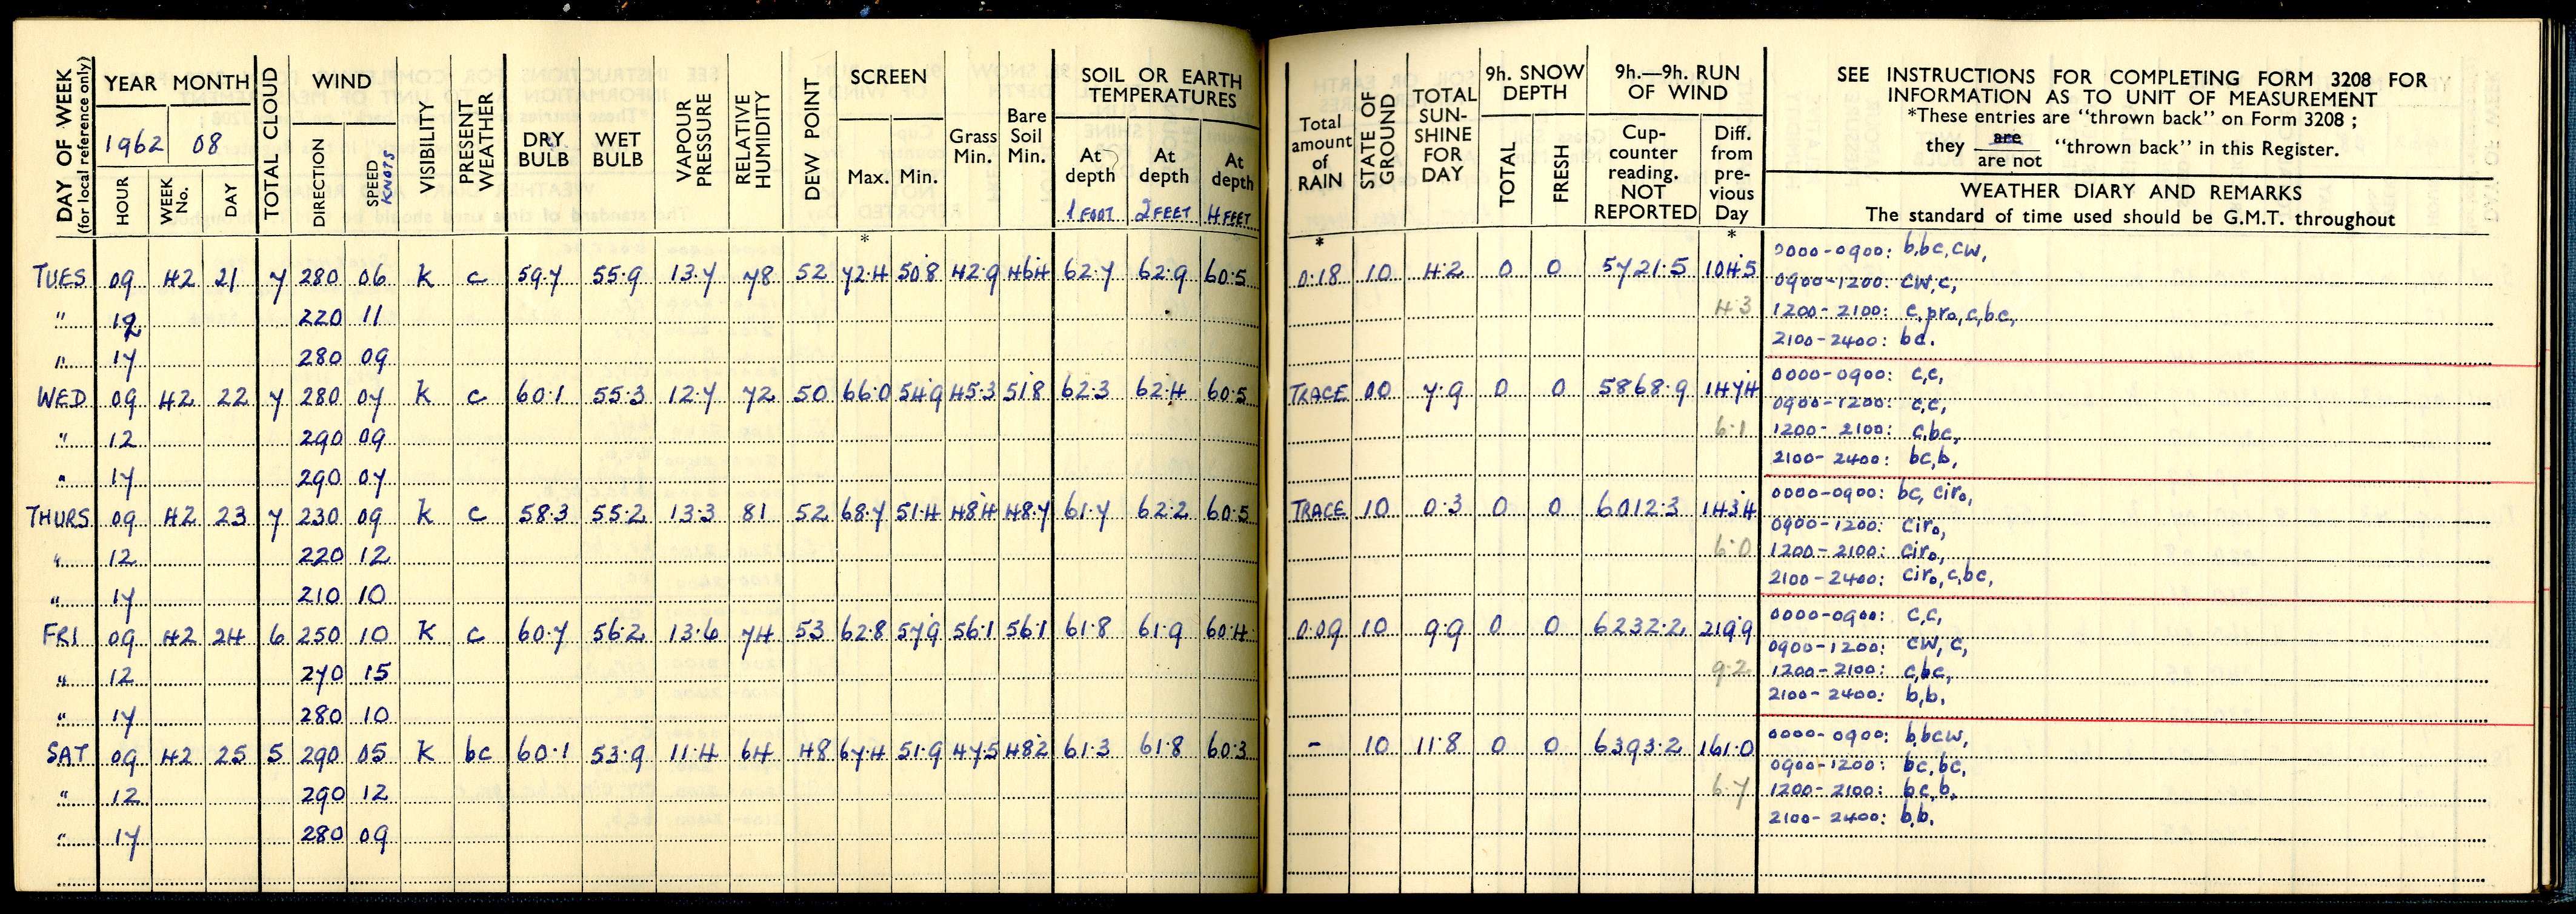 DAY OF WEEK (for local reference only)
YEAR MONTH
1962 08
HOUR WEEK No. DAY
TOTAL CLOUD
WIND
DIRECTION SPEED KNOTS
VISIBILITY
PRESENT WEATHER
DRY BULB
WET BULB
VAPOUR PRESSURE
RELATIVE HUMIDITY
DEW POINT
SCREEN
Max. Min.
Grass Min.
Bare Soil Min.
SOIL OR EARTH TEMPERATURES
At depth 1 FOOT
At depth 2 FEET
At depth 4 FEET
Total amount of RAIN
STATE OF GROUND
TOTAL SUN-SHINE FOR DAY
9h. SNOW DEPTH
TOTAL FRESH
9h.—9h. RUN OF WIND
Cup-counter reading. NOT REPORTED
Diff. from pre-vious Day
SEE INSTRUCTIONS FOR COMPLETING FORM 3208 FOR
INFORMATION AS TO UNIT OF MEASUREMENT
*These entries are "thrown back" on Form 3208 ;
they are / are not "thrown back" in this Register.
WEATHER DIARY AND REMARKS
The standard of time used should be G.M.T. throughout
* * *
TUES 09 42 21 7 280 06 k c 59.7 55.9 13.7 78 52 72.4 50.8 42.9 46.4 62.7 62.9 60.5 0.18 10 4.2 0 0 5721.5 104.5 0000-0900: b,bc,cw,
0900-1200: cw,c,
" 12 220 11 4.3 1200-2100: c,pro,c,bc,
" 17 280 09 2100-2400: bc.
WED 09 42 22 7 280 07 k c 60.1 55.3 12.7 72 50 66.0 54.9 45.3 51.8 62.3 62.4 60.5 TRACE 00 7.9 0 0 5868.9 147.4 0000-0900: c,c,
0900-1200: c,c,
" 12 290 09 6.1 1200-2100: c,bc,
" 17 290 07 2100-2400: bc,b,
THURS 09 42 23 7 230 09 k c 58.3 55.2 13.3 81 52 68.7 51.4 48.4 48.7 61.7 62.2 60.5 TRACE 10 0.3 0 0 6012.3 143.4 0000-0900: bc, ciro,
0900-1200: ciro,
" 12 220 12 6.0 1200-2100: ciro,
" 17 210 10 2100-2400: ciro,c,bc,
FRI 09 42 24 6 250 10 k c 60.7 56.2 13.6 74 53 62.8 57.9 56.1 56.1 61.8 61.9 60.4 0.09 10 9.9 0 0 6232.2 219.9 0000-0900: c,c,
0900-1200: cw, c,
" 12 270 15 9.2 1200-2100: c,bc,
" 17 280 10 2100-2400: b,b,
SAT 09 42 25 5 290 05 k bc 60.1 53.9 11.4 64 48 67.4 51.9 47.5 48.2 61.3 61.8 60.3 - 10 11.8 0 0 6393.2 161.0 0000-0900: b,bcw,
0900-1200: bc,bc,
" 12 290 12 6.7 1200-2100: bc,b,
" 17 280 09 2100-2400: b,b.